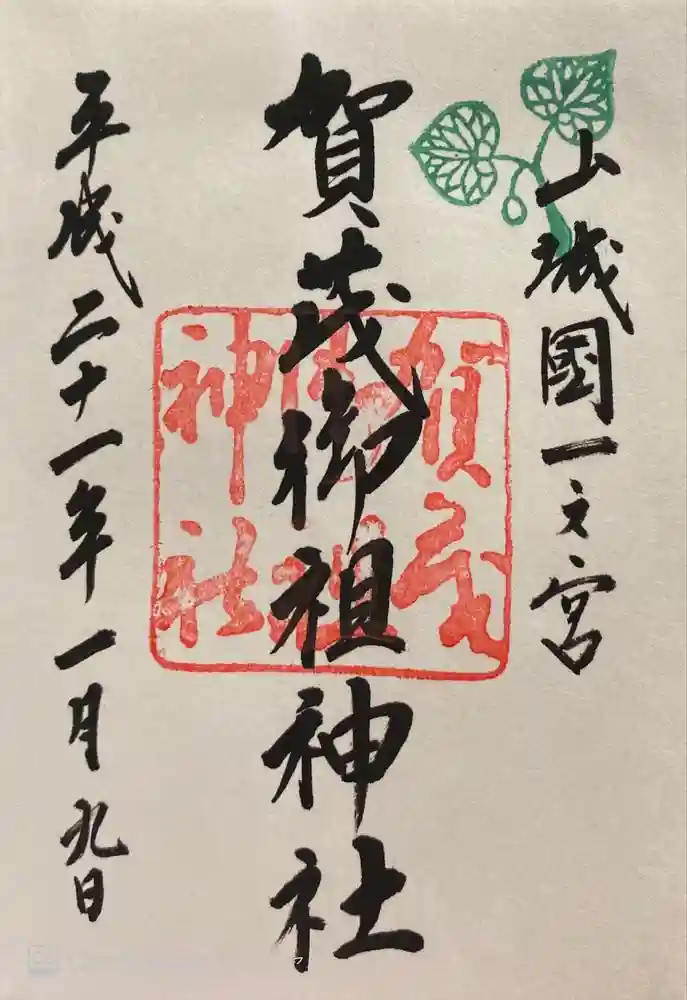 山城國一之宮
賀茂御祖神社
賀茂
御祖
神社
平成二十一年一月九日